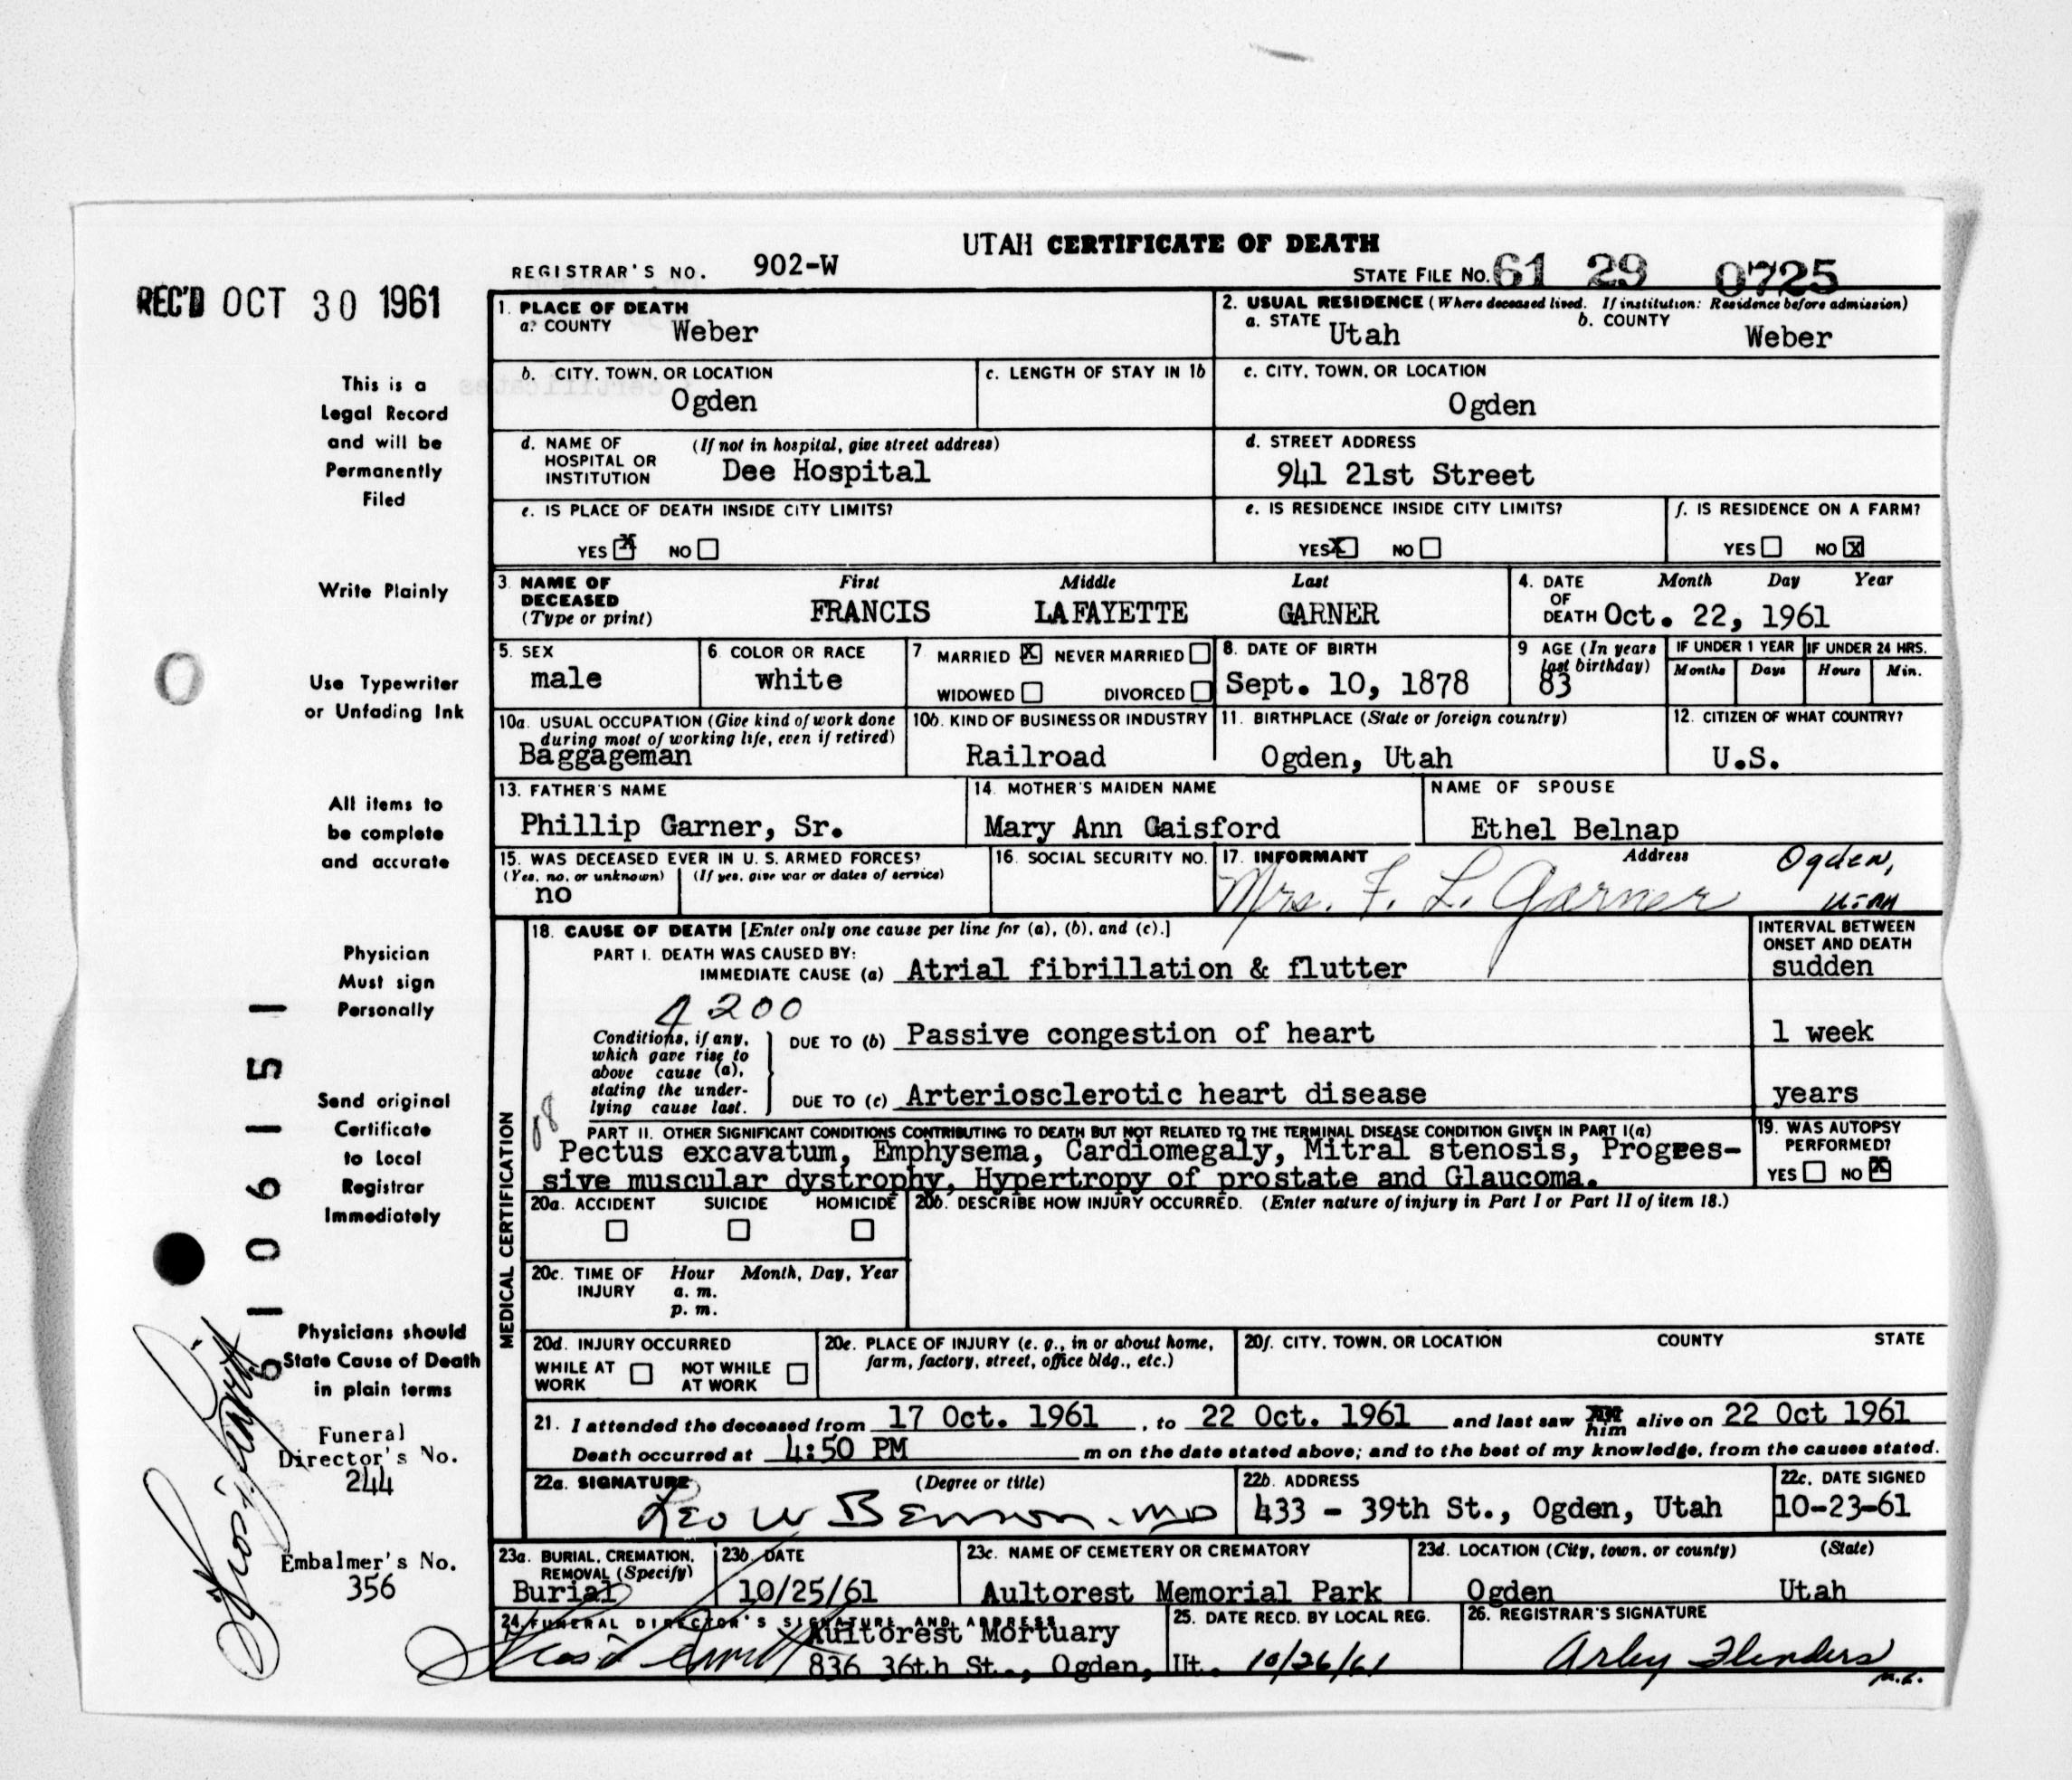 UTAH CERTIFICATE OF DEATH
REGISTRAR'S NO. 902-W
STATE FILE NO. 61 29 0725
REC'D OCT 30 1961
1. PLACE OF DEATH
a. COUNTY Weber
2. USUAL RESIDENCE (Where deceased lived. If institution: Residence before admission)
a. STATE Utah b. COUNTY Weber
b. CITY, TOWN, OR LOCATION
Ogden
c. LENGTH OF STAY IN 1b
c. CITY, TOWN, OR LOCATION
Ogden
d. NAME OF HOSPITAL OR INSTITUTION (If not in hospital, give street address)
Dee Hospital
d. STREET ADDRESS
941 21st Street
e. IS PLACE OF DEATH INSIDE CITY LIMITS?
YES X NO
e. IS RESIDENCE INSIDE CITY LIMITS?
YES X NO
f. IS RESIDENCE ON A FARM?
YES NO X
3. NAME OF DECEASED (Type or print)
First Middle Last
FRANCIS LAFAYETTE GARNER
4. DATE OF DEATH Month Day Year
Oct. 22, 1961
5. SEX
male
6. COLOR OR RACE
white
7. MARRIED X NEVER MARRIED
WIDOWED DIVORCED
8. DATE OF BIRTH
Sept. 10, 1878
9 AGE (In years last birthday)
83
IF UNDER 1 YEAR
Months Days
IF UNDER 24 HRS.
Hours Min.
10a. USUAL OCCUPATION (Give kind of work done during most of working life, even if retired)
Baggageman
10b. KIND OF BUSINESS OR INDUSTRY
Railroad
11. BIRTHPLACE (State or foreign country)
Ogden, Utah
12. CITIZEN OF WHAT COUNTRY?
U.S.
13. FATHER'S NAME
Phillip Garner, Sr.
14. MOTHER'S MAIDEN NAME
Mary Ann Gaisford
NAME OF SPOUSE
Ethel Belnap
15. WAS DECEASED EVER IN U.S. ARMED FORCES?
(Yes, no, or unknown) (If yes, give war or dates of service)
no
16. SOCIAL SECURITY NO.
17. INFORMANT Address
Mrs. F. L. Garner Ogden,
Utah
MEDICAL CERTIFICATION
18. CAUSE OF DEATH [Enter only one cause per line for (a), (b), and (c).]
INTERVAL BETWEEN ONSET AND DEATH
PART I. DEATH WAS CAUSED BY:
IMMEDIATE CAUSE (a) Atrial fibrillation & flutter sudden
4200
Conditions, if any, which gave rise to above cause (a), stating the underlying cause last.
DUE TO (b) Passive congestion of heart 1 week
DUE TO (c) Arteriosclerotic heart disease years
PART II. OTHER SIGNIFICANT CONDITIONS CONTRIBUTING TO DEATH BUT NOT RELATED TO THE TERMINAL DISEASE CONDITION GIVEN IN PART I(a)
Pectus excavatum, Emphysema, Cardiomegaly, Mitral stenosis, Progres-
sive muscular dystrophy, Hypertropy of prostate and Glaucoma.
19. WAS AUTOPSY PERFORMED?
YES NO X
20a. ACCIDENT SUICIDE HOMICIDE
20b. DESCRIBE HOW INJURY OCCURRED. (Enter nature of injury in Part I or Part II of item 18.)
20c. TIME OF INJURY Hour Month, Day, Year
a. m.
p. m.
20d. INJURY OCCURRED
WHILE AT WORK NOT WHILE AT WORK
20e. PLACE OF INJURY (e. g., in or about home, farm, factory, street, office bldg., etc.)
20f. CITY, TOWN, OR LOCATION COUNTY STATE
21. I attended the deceased from 17 Oct. 1961, to 22 Oct. 1961 and last saw him alive on 22 Oct 1961
Death occurred at 4:50 PM m on the date stated above; and to the best of my knowledge, from the causes stated.
22a. SIGNATURE (Degree or title)
Leo W Benson. MD
22b. ADDRESS
433 - 39th St., Ogden, Utah
22c. DATE SIGNED
10-23-61
23a. BURIAL, CREMATION, REMOVAL (Specify)
Burial
23b. DATE
10/25/61
23c. NAME OF CEMETERY OR CREMATORY
Aultorest Memorial Park
23d. LOCATION (City, town, or county) (State)
Ogden Utah
24. FUNERAL DIRECTOR'S SIGNATURE AND ADDRESS
Aultorest Mortuary
836 36th St., Ogden, Ut.
25. DATE RECD. BY LOCAL REG.
10/26/61
26. REGISTRAR'S SIGNATURE
Arley Flinders
This is a
Legal Record
and will be
Permanently
Filed
Write Plainly
Use Typewriter
or Unfading Ink
All items to
be complete
and accurate
Physician
Must sign
Personally
Send original
Certificate
to Local
Registrar
Immediately
Physicians should
State Cause of Death
in plain terms
Funeral
Director's No.
244
Embalmer's No.
356
6106151